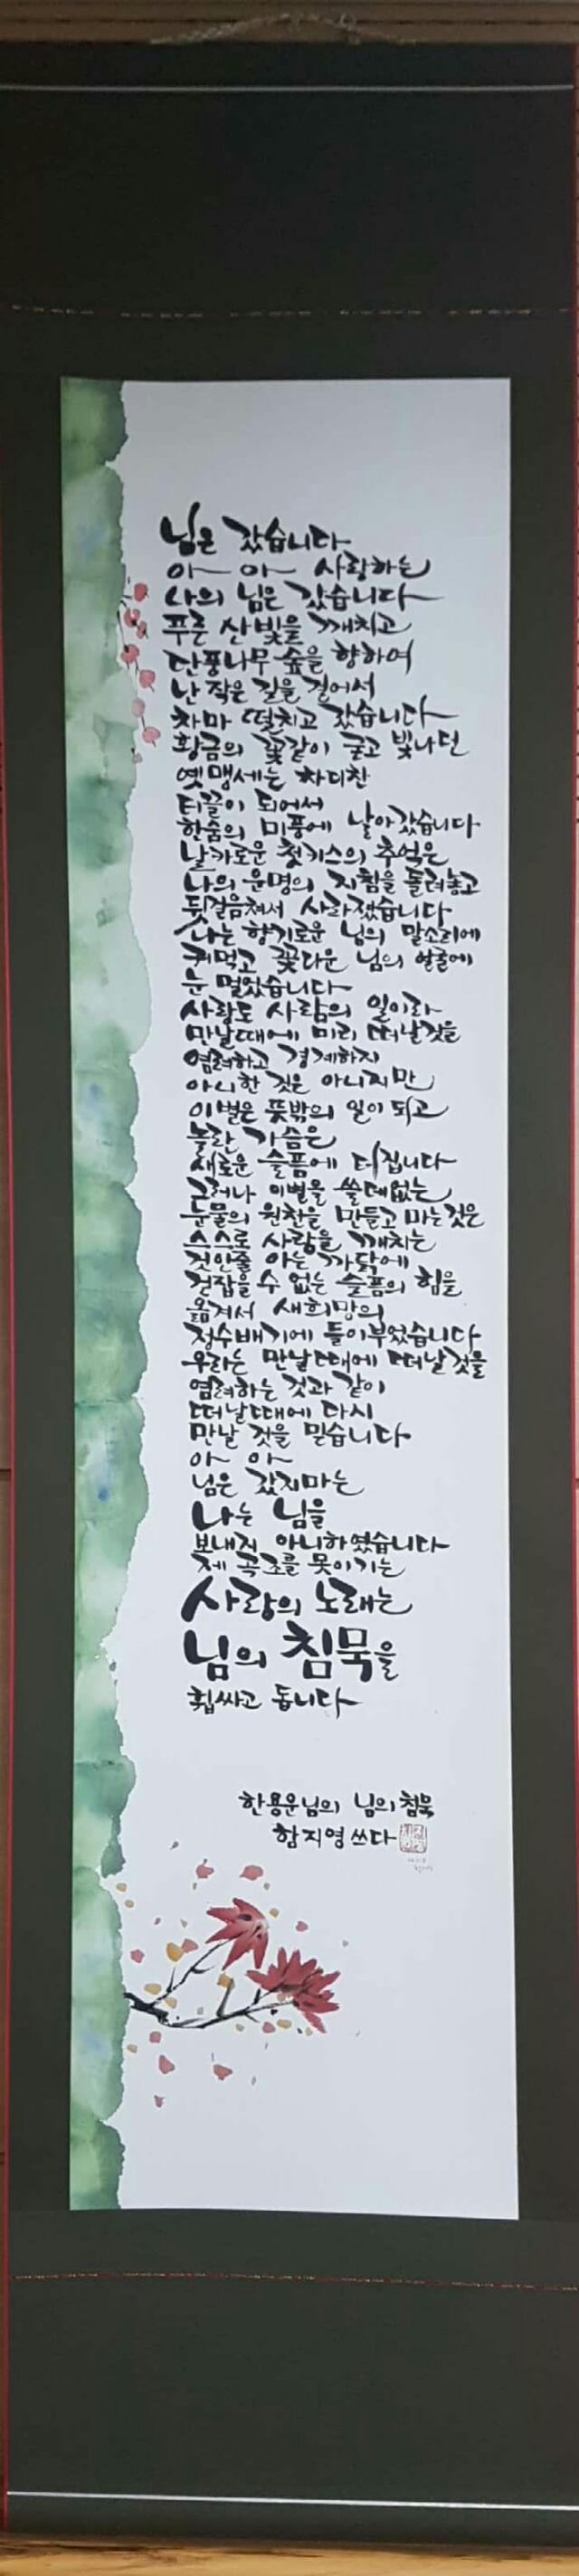 님은 갔습니다
아— 아— 사랑하는
나의 님은 갔습니다
푸른 산빛을 깨치고
단풍나무 숲을 향하여
난 작은 길을 걸어서
차마 떨치고 갔습니다
황금의 꽃같이 굳고 빛나던
옛 맹세는 차디찬
티끌이 되어서
한숨의 미풍에 날아갔습니다
날카로운 첫키스의 추억은
나의 운명의 지침을 돌려놓고
뒷걸음쳐서 사라졌습니다
나는 향기로운 님의 말소리에
귀먹고 꽃다운 님의 얼굴에
눈 멀었습니다
사랑도 사람의 일이라
만날 때에 미리 떠날 것을
염려하고 경계하지
아니한 것은 아니지만
이별은 뜻밖의 일이 되고
놀란 가슴은
새로운 슬픔에 터집니다
그러나 이별을 쓸데없는
눈물의 원천을 만들고 마는 것은
스스로 사랑을 깨치는
것인줄 아는 까닭에
걷잡을 수 없는 슬픔의 힘을
옮겨서 새희망의
정수배기에 들이부었습니다
우리는 만날 때에 떠날 것을
염려하는 것과 같이
떠날 때에 다시
만날 것을 믿습니다
아— 아—
님은 갔지마는
나는 님을
보내지 아니하였습니다
제 곡조를 못이기는
사랑의 노래는
님의 침묵을
휩싸고 돕니다
한용운님의 님의 침묵
함지영 쓰다